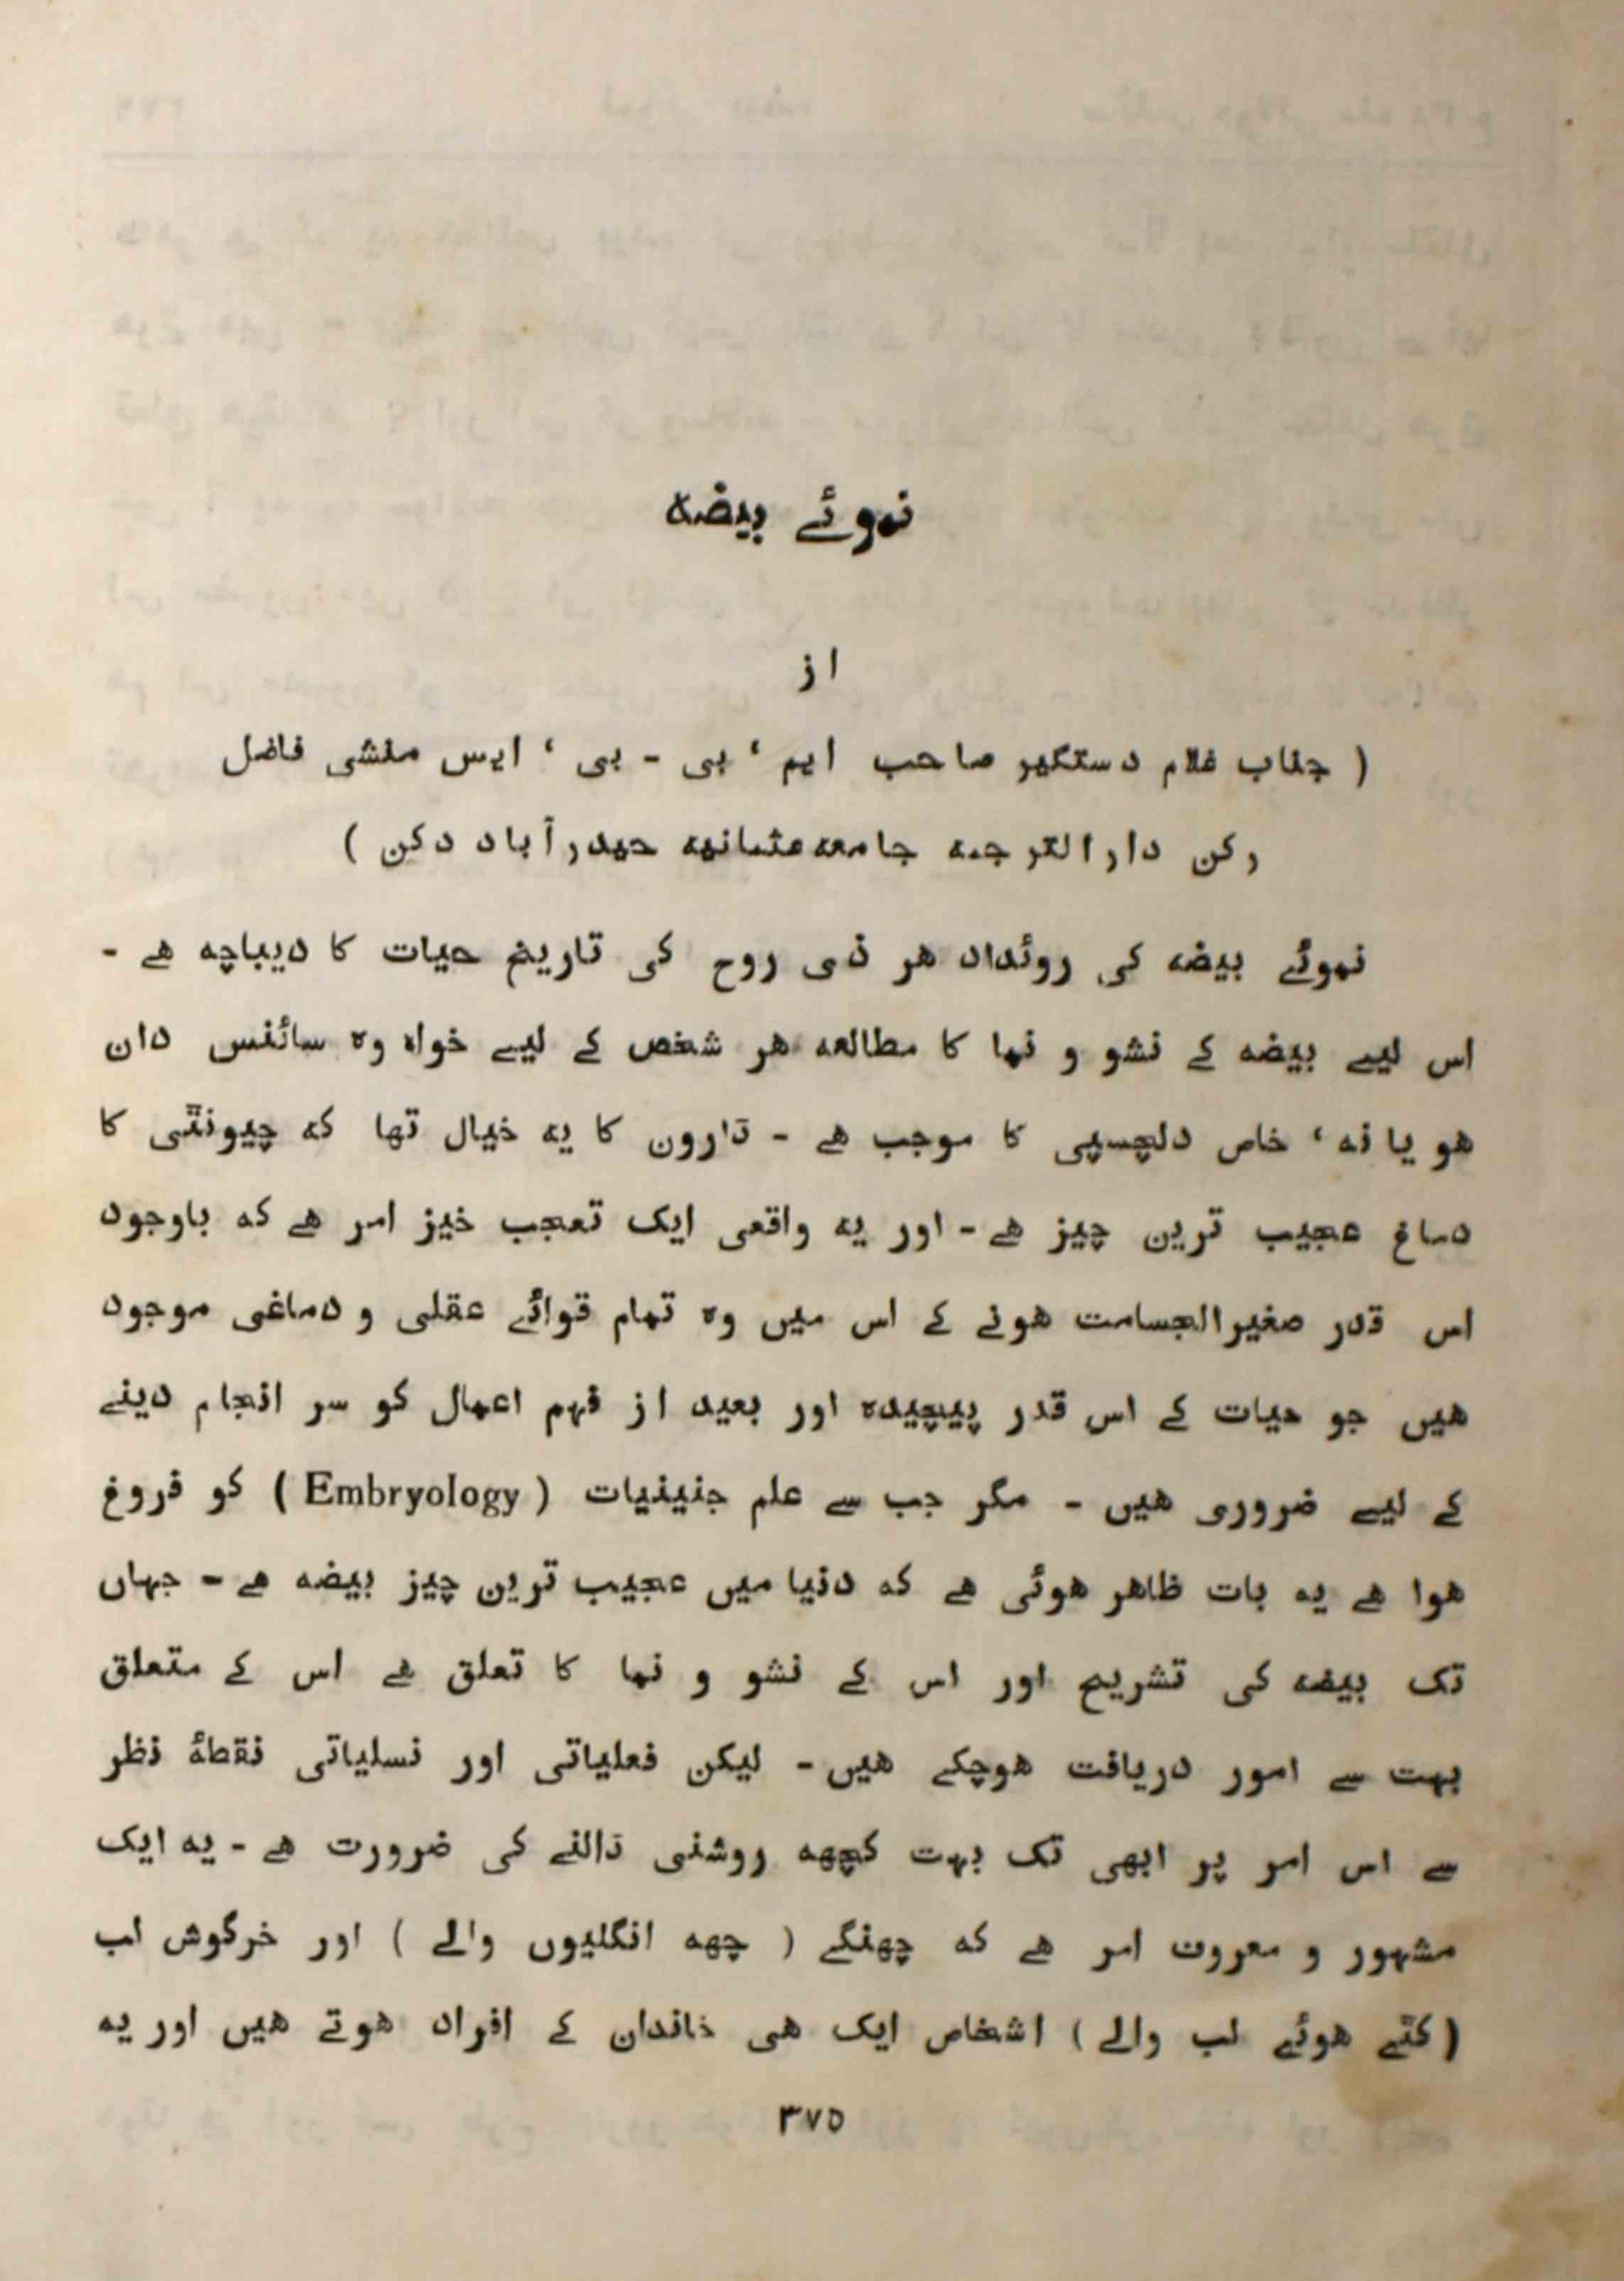 نموئے بیضہ
از
( جناب غلام دستگیر صاحب ایم ' بی - بی ' ایس منشی فاضل
رکن دارالترجمہ جامعہ عثمانیہ حیدرآباد دکن )
نموئے بیضہ کی روئداد ھر ذی روح کی تاریخ حیات کا دیباچہ ھے -
اس لیے بیضہ کے نشو و نما کا مطالعہ ھر شخص کے لیے خواہ وہ سائنس داں
ھو یا نہ ' خاص دلچسپی کا موجب ھے - ڈارون کا یہ خیال تھا کہ چیونٹی کا
دماغ عجیب ترین چیز ھے - اور یہ واقعی ایک تعجب خیز امر ھے کہ باوجود
اس قدر صغیرالجسامت ھونے کے اس میں وہ تمام قوائے عقلی و دماغی موجود
ھیں جو حیات کے اس قدر پیچیدہ اور بعید از فہم اعمال کو سر انجام دینے
کے لیے ضروری ھیں - مگر جب سے علم جنینیات ( Embryology ) کو فروغ
ھوا ھے یہ بات ظاھر ھوئی ھے کہ دنیا میں عجیب ترین چیز بیضہ ھے - جہاں
تک بیضہ کی تشریح اور اس کے نشو و نما کا تعلق ھے اس کے متعلق
بہت سے امور دریافت ھوچکے ھیں - لیکن فعلیاتی اور نسلیاتی نقطۂ نظر
سے اس امر پر ابھی تک بہت کچھہ روشنی ڈالنے کی ضرورت ھے - یہ ایک
مشہور و معروف امر ھے کہ چھنگے ( چھہ انگلیوں والے ) اور خرگوش لب
( کٹے ھوئے لب والے ) اشخاص ایک ھی خاندان کے افراد ھوتے ھیں اور یہ
۳۷۵